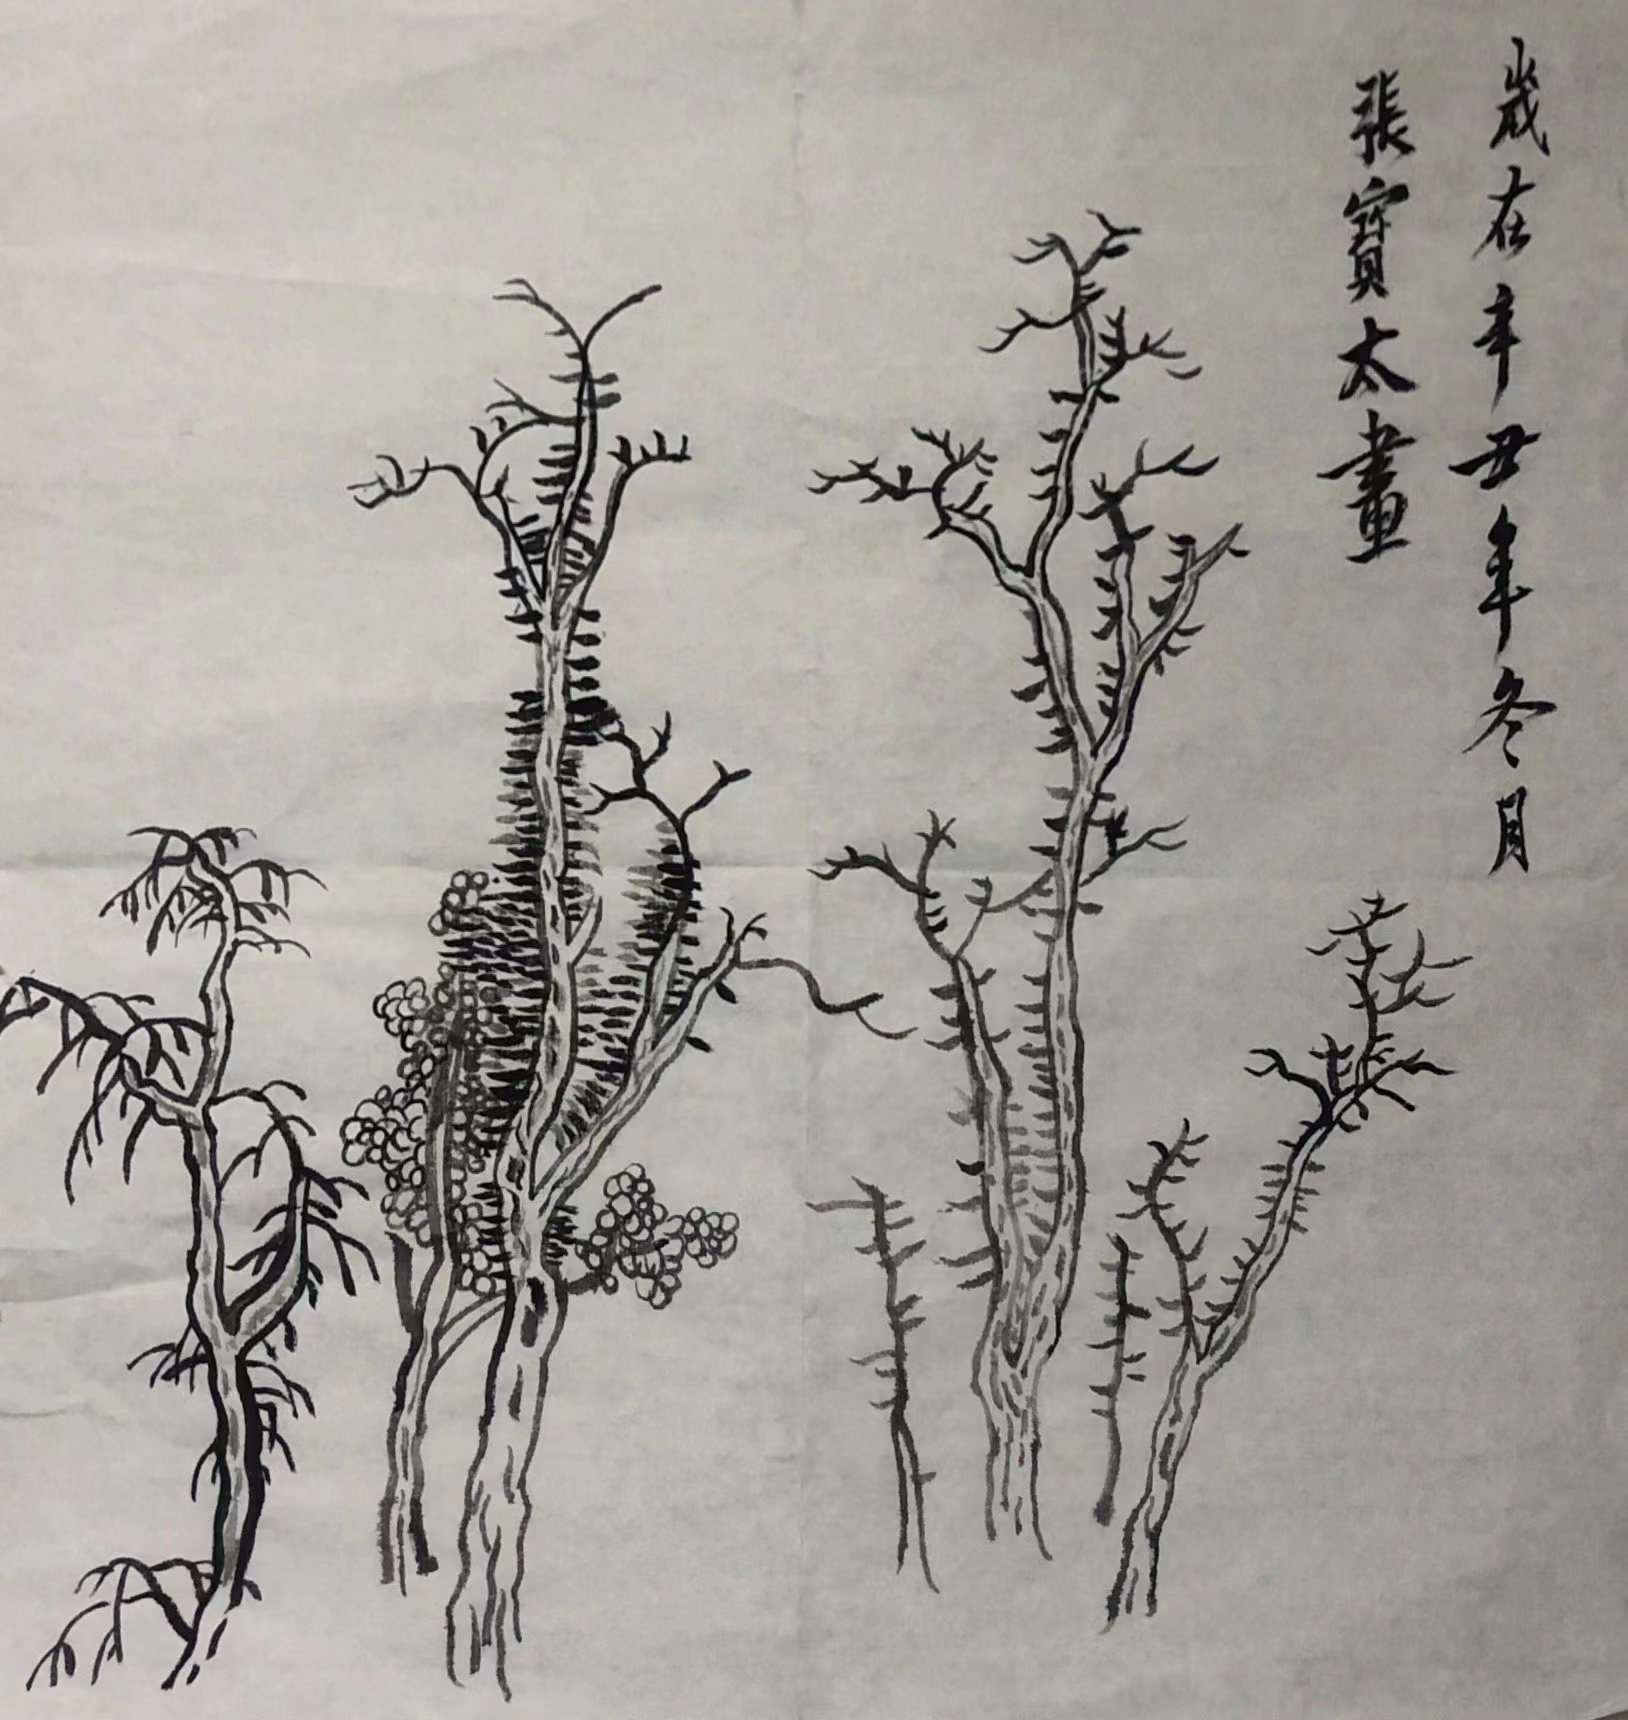 歲在辛丑年冬月
張寶太畫